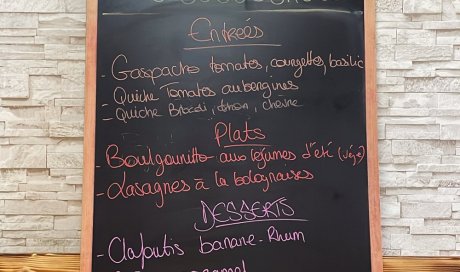 Entrées
- Gaspacho tomates, courgettes, basilic
- Quiche Tomates aubergines
- Quiche Brocoli, thon, chèvre
Plats
- Boulgounitto aux légumes d'été (végé)
- Lasagnes à la bolognaises
DESSERTS
- Clafoutis banane - Rhum
caramel